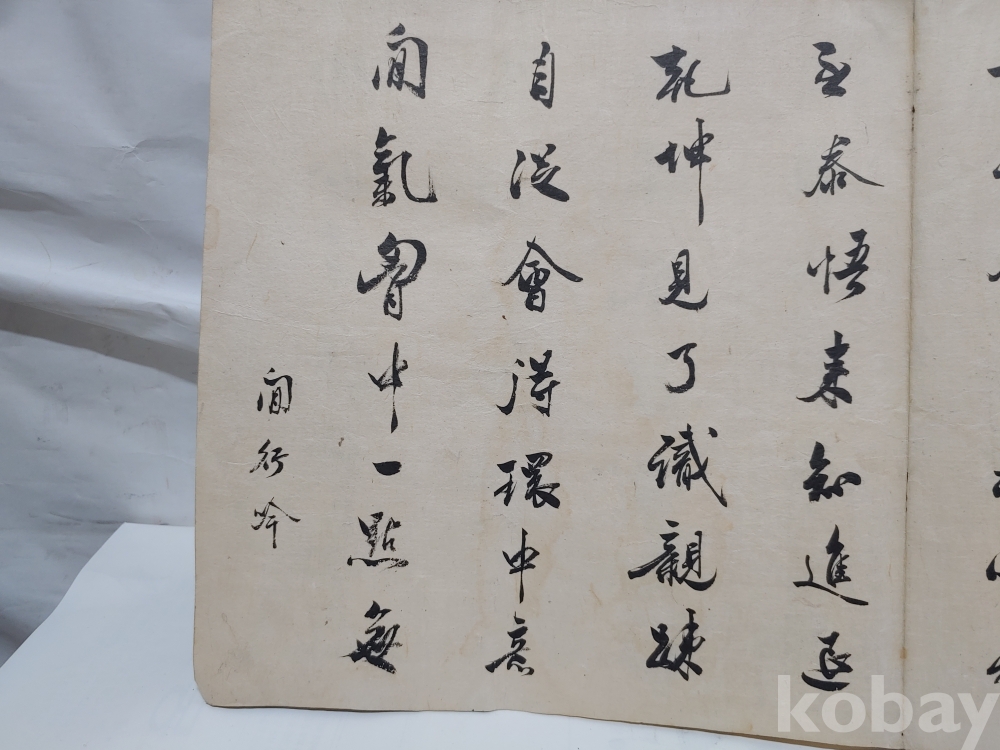 否泰悟来知進退
乾坤見了識親踈
自從會得環中意
閒氣胷中一點無
閒行吟
kobay